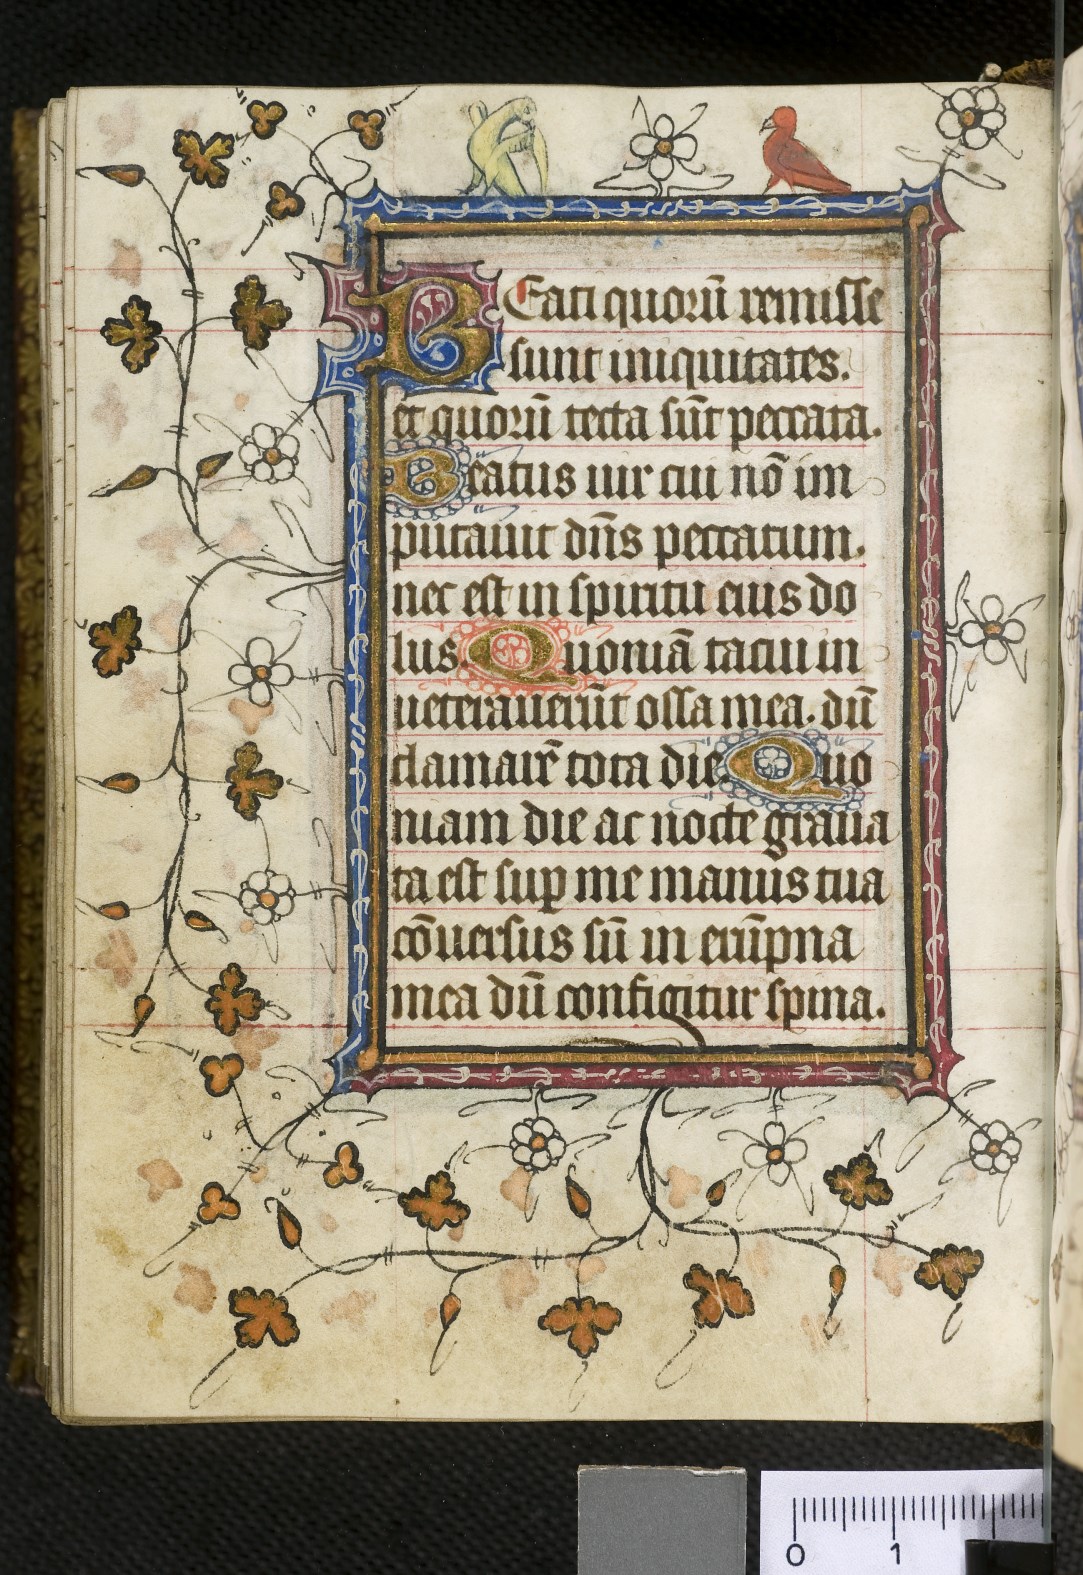 Beati quorū remisse
sunt iniquitates.
et quorū tecta sūt peccata.
Beatus uir cui nō im
putauit dn̄s peccatum.
nec est in spiritu eius do
lus. Quoniā tacui in
ueterauerūt ossa mea. dū
clamarē tota die Quo
niam die ac nocte graua
ta est suꝑ me manus tua
cōuersus sū in erūpna
mea dū configitur spina.
0 1